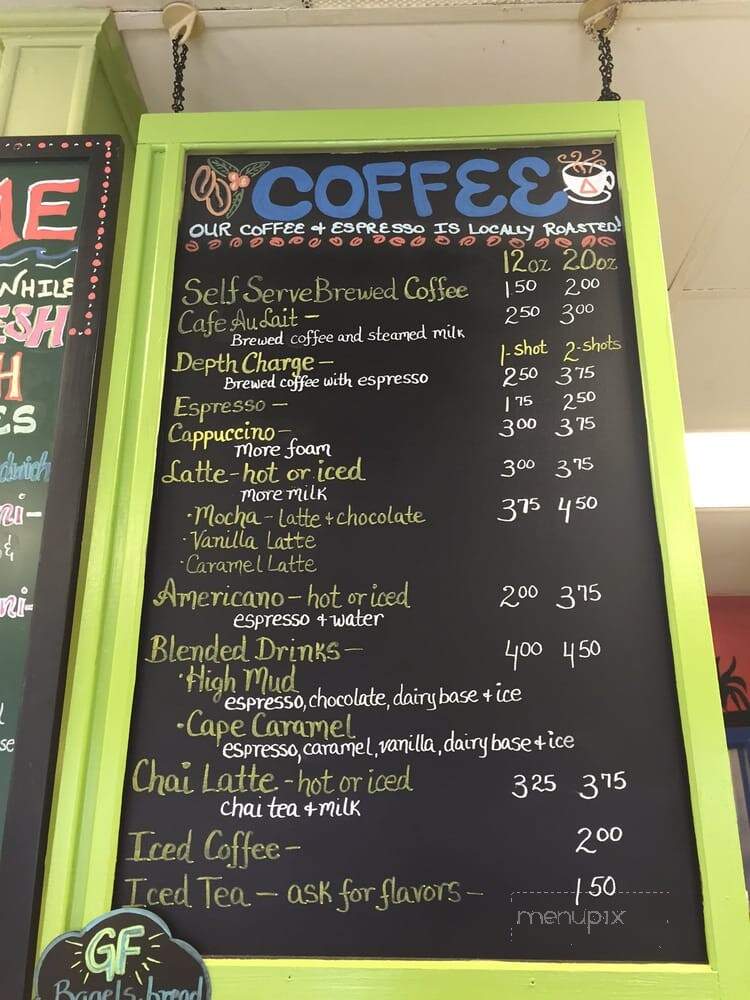 COFFEE
OUR COFFEE & ESPRESSO IS LOCALLY ROASTED!
12oz 20oz
Self Serve Brewed Coffee 1 50 2 00
Cafe Au Lait - 2 50 3 00
Brewed coffee and steamed milk
1-shot 2-shots
Depth Charge - 2 50 3 75
Brewed coffee with espresso
Espresso - 1 75 2 50
Cappuccino - 3 00 3 75
More foam
Latte - hot or iced 3 00 3 75
more milk
• Mocha - latte + chocolate 3 75 4 50
• Vanilla Latte
• Caramel Latte
Americano - hot or iced 2 00 3 75
espresso + water
Blended Drinks - 4 00 4 50
• High Mud
espresso, chocolate, dairy base + ice
• Cape Caramel
espresso, caramel, vanilla, dairy base + ice
Chai Latte - hot or iced 3 25 3 75
chai tea + milk
Iced Coffee - 2 00
Iced Tea - ask for flavors - 1 50
menupix
GF
Bagels, bread
WHILE